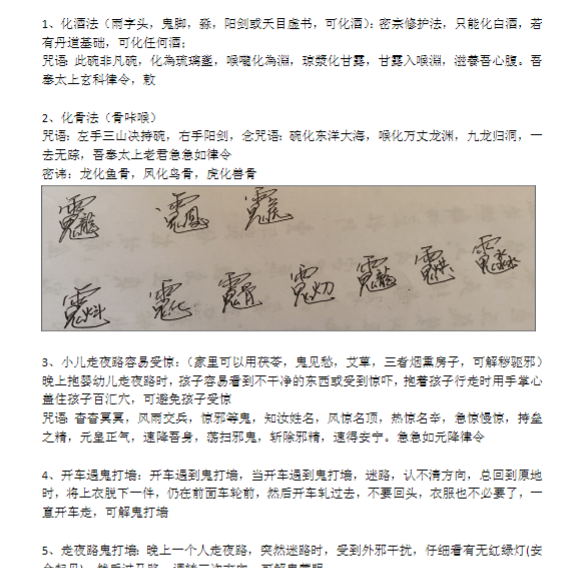 1、化酒法（雨字头，鬼脚，淼，阳剑或天目虚书，可化酒）：密宗修护法，只能化白酒，若
有丹道基础，可化任何酒；
咒语：此碗非凡碗，化為琉璃盏，喉嚨化為淵，琼浆化甘露，甘露入喉淵，滋養吾心腹。吾
奉太上玄科律令，敕
2、化骨法（骨咔喉）
咒语：左手三山决持碗，右手阳剑，念咒语：碗化东洋大海，喉化万丈龙渊，九龙归洞，一
去无踪，吾奉太上老君急急如律令
密讳：龙化鱼骨，凤化鸟骨，虎化兽骨
3、小儿走夜路容易受惊：（家里可以用茯苓，鬼见愁，艾草，三者烟熏房子，可解秽驱邪）
晚上抱婴幼儿走夜路时，孩子容易看到不干净的东西或受到惊吓，抱着孩子行走时用手掌心
盖住孩子百汇穴，可避免孩子受惊
咒语：杳杳冥冥，风雨交兵，惊邪等鬼，知汝姓名，风惊名顶，热惊名辛，急惊慢惊，持
之精，元皇正气，速降吾身，荡扫邪鬼，斩除邪精，速得安宁。急急如元降律令
4、开车遇鬼打墙：开车遇到鬼打墙，当开车遇到鬼打墙，迷路，认不清方向，总回到原地
时，将上衣脱下一件，仍在前面车轮前，然后开车轧过去，不要回头，衣服也不必要了，一
意开车走，可解鬼打墙
5、走夜路鬼打墙：晚上一个人走夜路，突然迷路时，受到外邪干扰，仔细看有无红绿灯(安